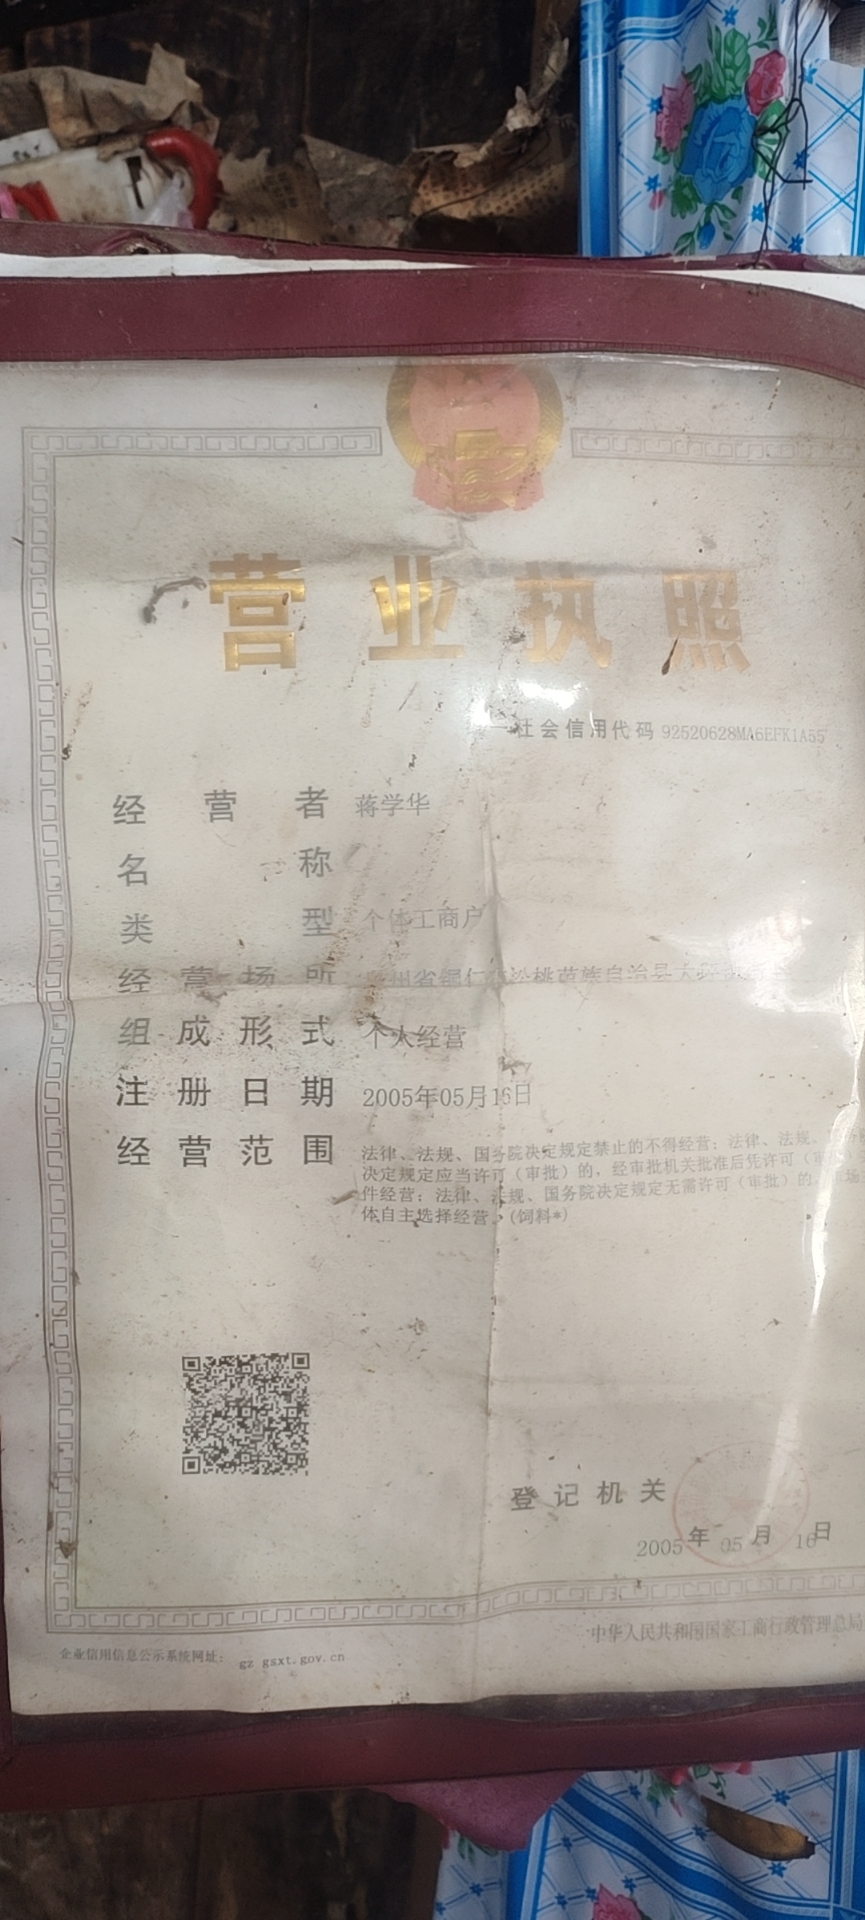 营业执照
社会信用代码 92520628MA6EFK1A55
经营者 蒋学华
名称
类型 个体工商户
经营场所 州省铜仁 松桃苗族自治县大
组成形式 个人经营
注册日期 2005年05月16日
经营范围 法律、法规、国务院决定规定禁止的不得经营；法律、法规、
决定规定应当许可（审批）的，经审批机关批准后凭许可（审
件经营；法律、法规、国务院决定规定无需许可（审批）的， 场
体自主选择经营。(饲料*)
登记机关
2005年05月16日
企业信用信息公示系统网址： gz gsxt.gov.cn
中华人民共和国国家工商行政管理总局